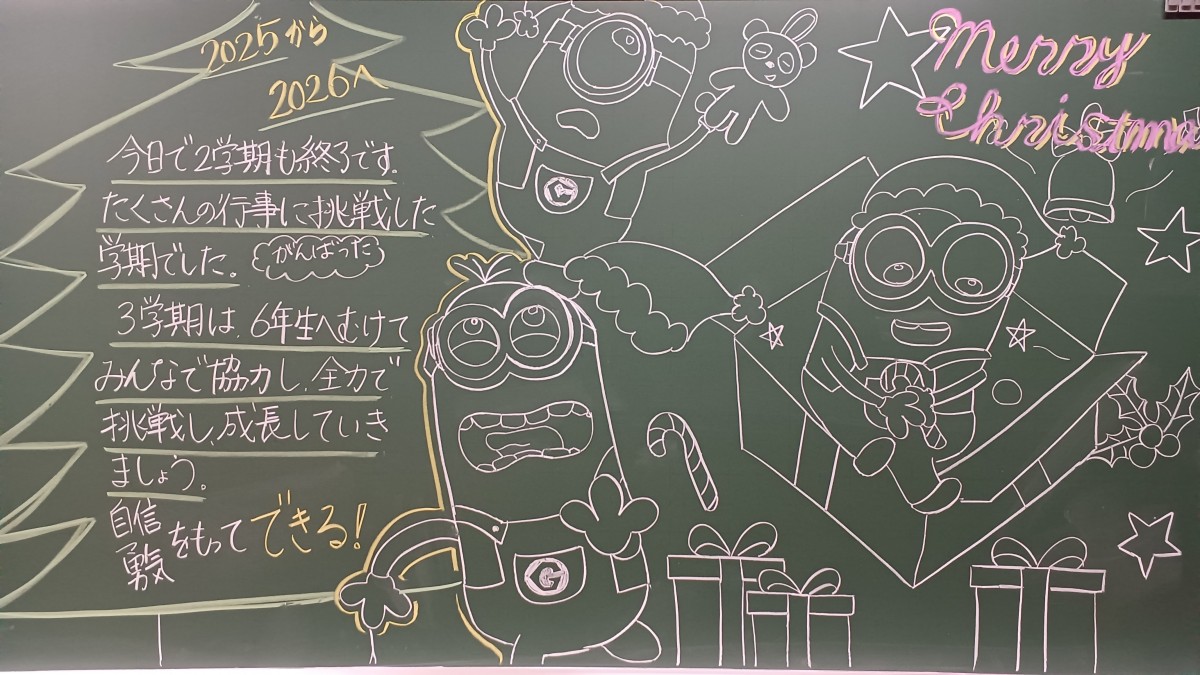 2025から
2026へ
今日で2学期も終了です。
たくさんの行事に挑戦した
学期でした。 がんばった
3学期は、6年生へむけて
みんなで協力し、全力で
挑戦し、成長していき
ましょう。
自信
勇気
をもって できる!
Merry
Christmas
G